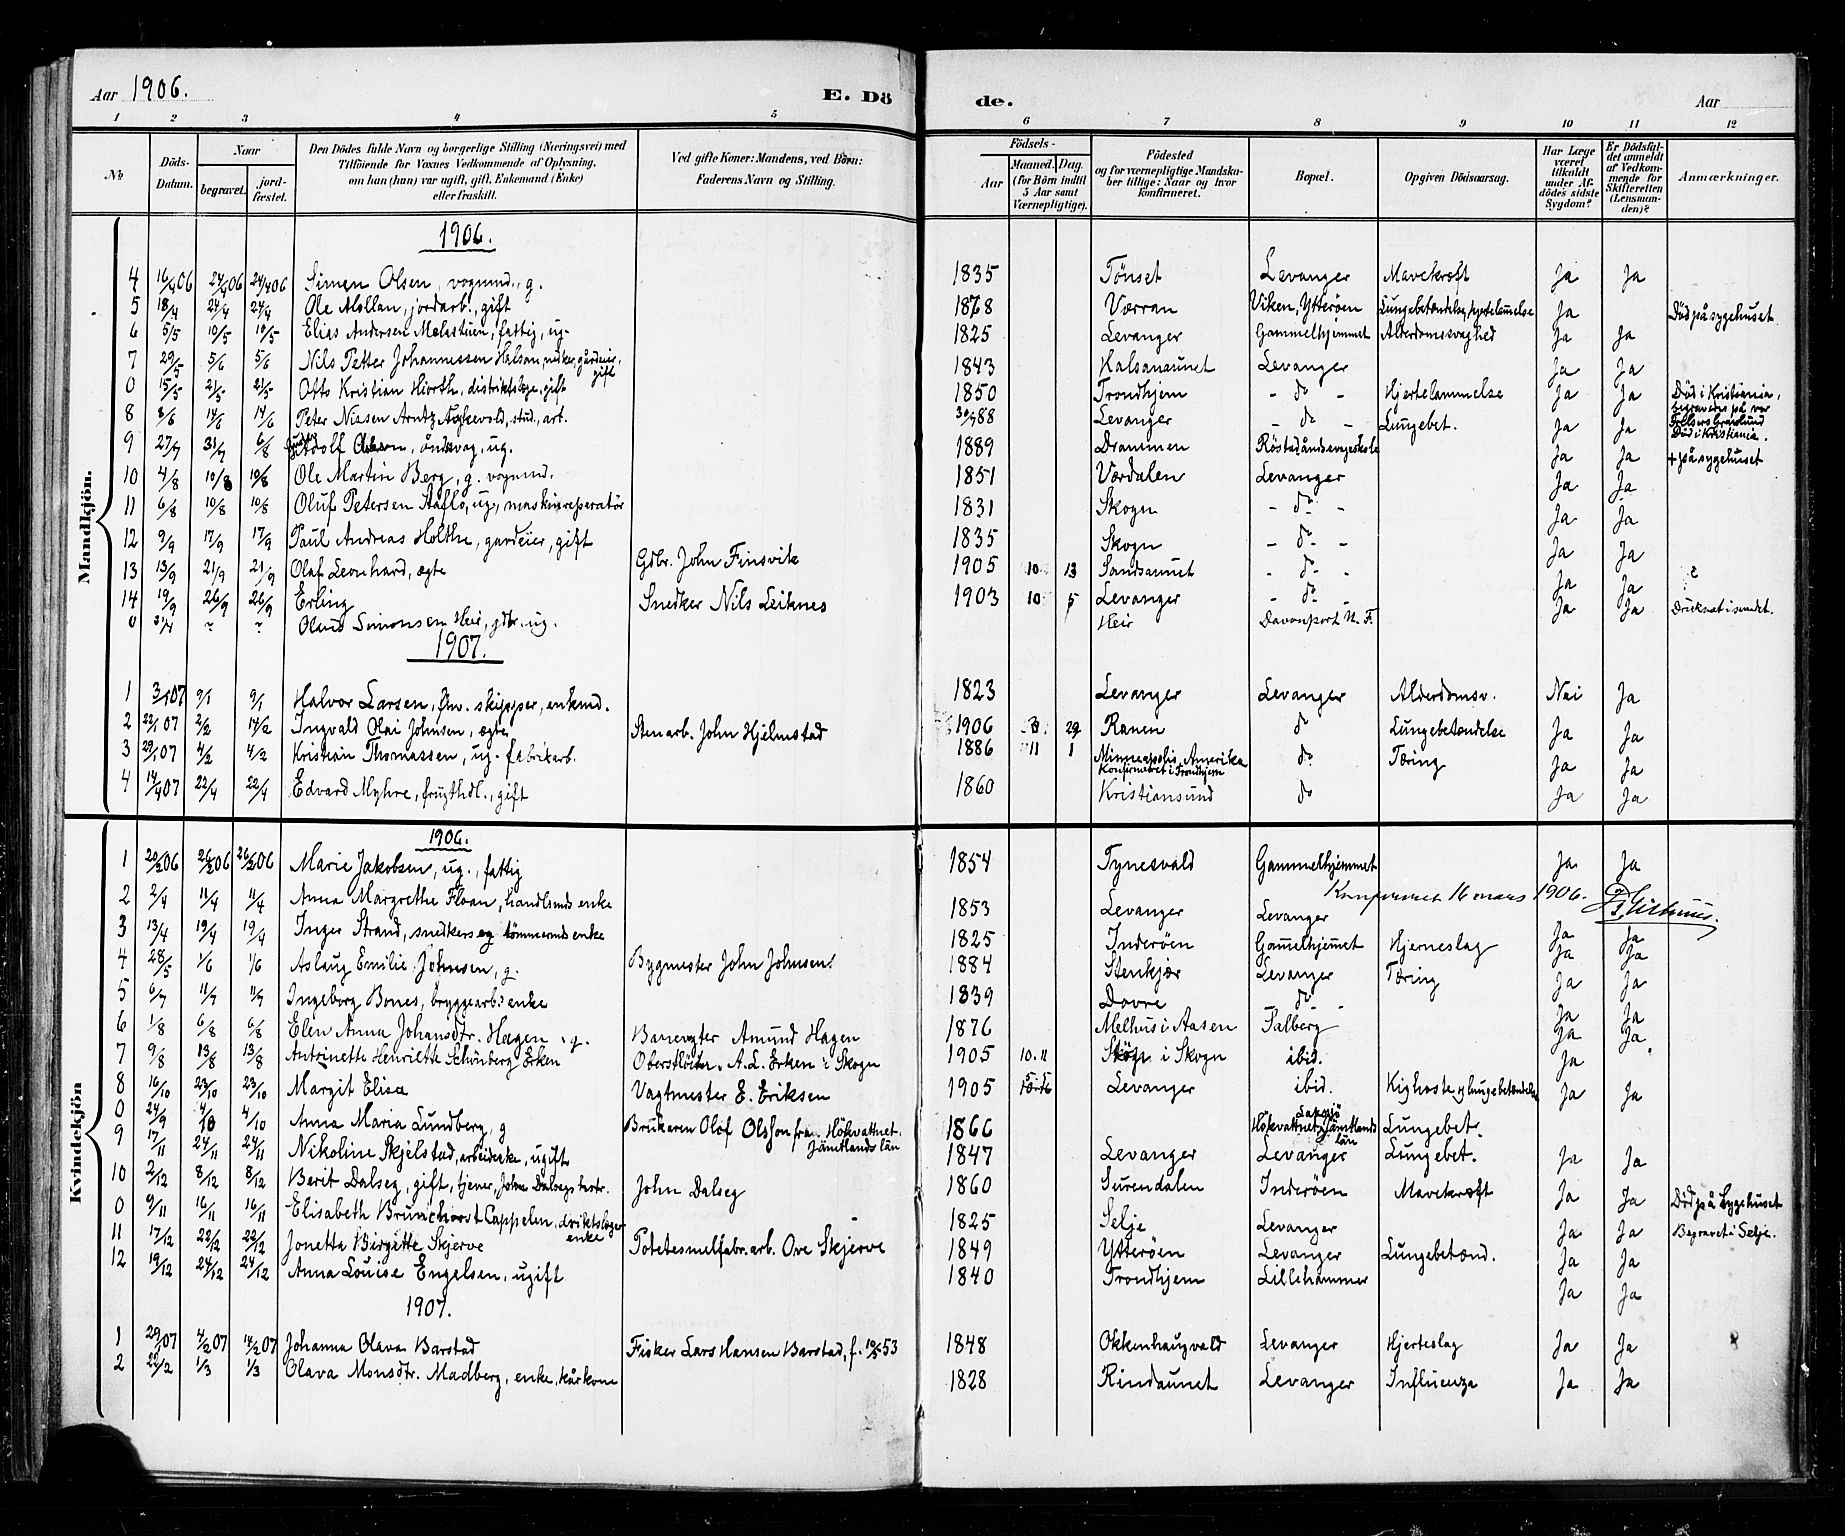 Aar 1906. E. Dö de. Aar
1 2 3 4 5 6 7 8 9 10 11 12
No Döds-Datum. Naar begravet. jord-fæstet. Den Dödes fulde Navn og borgerlige Stilling (Næringsvei) med Tilföiende for Voxnes Vedkommende af Oplysning, om han (hun) var ugift, gift, Enkemand (Enke) eller fraskilt. Ved gifte Koner: Mandens, ved Börn: Faderens Navn og Stilling. Födsels- Aar Maaned. Dag. (for Börn indtil 5 Aar samt Værnepligtige). Födested og for værnepligtige Mandskaber tillige: Naar og hvor konfirmeret. Bopæl. Opgiven Dödsaarsag. Har Læge været tilkaldt under Afdödes sidste Sygdom? Er Dödsfaldet anmeldt af Vedkommende for Skifteretten (Lensmanden)? Anmærkninger.
Mandkjön.
1906.
4 16/4 06 24/4 06 24/4 06 Simen Olsen, vognmd., g. 1835 Tönset Levanger Mavekræft Ja Ja
5 18/4 24/4 24/4 Ole Mollan, jordarb., gift 1868 Værran Viken, Ytteröen Lungebetændelse, hjertelammelse Ja Död på sygehuset.
6 5/5 10/5 10/5 Elias Andersen Melastuen, fattig, ug. 1825 Levanger Gammelhjemmet Alderdomssvaghed Ja Ja
7 29/5 5/6 5/6 Nils Petter Johannessen Halsan, gårdeier, gift 1843 Halsanaunet Levanger Ja Ja
0 15/5 21/5 21/5 Otto Kristian Hiorth, distriktslæge, gift 1850 Trondhjem - do - Hjertelammelse Ja Ja Död i Kristiania,
8 8/6 14/6 14/6 Peter Nissen Arntz, stud. art. 30/7 88 Levanger - do - Lungebet. Ja Ja Död i Kristiania.
9 27/7 31/7 6/8 Adolf Olsen, åndsvag, ug. 1889 Drammen Röstad åndssvageskole Ja Ja + på sygehuset
10 4/8 10/8 10/8 Ole Martin Berg, g. vognmd. 1851 Værdalen Levanger Ja Ja
11 6/8 10/8 10/8 Oluf Petersen Aaflo, ug., maskinreperatör 1831 Skogn - do - Ja Ja
12 9/9 17/9 17/9 Paul Andreas Holthe, gardeier, gift 1835 Skogn - do - Ja Ja
13 13/9 21/9 21/9 Olaf Leonhard, ægte Gdbr. John Finsvik 1905 10 13 Sandsaunet - do - Ja Ja
14 19/9 26/9 26/9 Erling Snedker Nils Leiknes 1903 10 5 Levanger - do - Ja Ja Druknet i sundet.
0 ? ? Olaus Simonsen Heir, gdbr. ug. Heir Davenport N. F.
1907.
1 3/1 07 9/1 9/1 Halvor Larsen, fhv. skipper, enkemd. 1823 Levanger Levanger Alderdomsv. Nei Ja
2 22/1 07 2/2 14/2 Ingvald Olai Johnsen, ægte Stenarb. John Hjelmstad 1906 8 29 Ranen do Lungebetændelse Ja Ja
3 29/1 07 4/2 4/2 Kristian Thomassen, ug. fabrikarb. 1886 11 1 Minneapolis, Amerika Konfirmeret i Trondhjem do Tæring Ja Ja
4 14/4 07 22/4 22/4 Edvard Myhre, frugthdl., gift 1860 Kristiansund do Ja Ja
Kvindekjön
1906.
1 20/2 06 26/2 06 26/2 06 Marie Jakobsen, ug., fattig 1854 Tynesvald Gammelhjemmet Ja Ja
Konfereret 16 mars 1906.
2 2/4 11/4 11/4 Anna Margrethe Floan, handlsmds enke 1853 Levanger Levanger Ja Ja
3 13/4 19/4 19/4 Inger Strand, snedker og tömmermds enke 1825 Inderöen Gamelhjemet Hjerneslag Ja Ja
4 28/5 1/6 1/6 Aslaug Emilie Johnsen, g. Bygmester John Johnsen. 1884 Stenkjær Levanger Tæring Ja Ja
5 6/7 11/7 11/7 Ingeborg Bones, bryggearb.s enke 1839 Dovre - do - Ja Ja
6 1/8 6/8 6/8 Elen Anna Johansdtr. Hagen, g. Banevgter Amund Hagen 1876 Melhus i Aasen Salberg Ja Ja
7 9/8 13/8 13/8 Antoinette Henriette Schönberg Erken Oberstlöitn. A. L. Erken i Skogn 1905 10. 11 i Skogn ibid. Ja
8 16/10 23/10 23/10 Margit Elisa Vagtmester E. Eriksen 1905 Levanger ibid. Kighoste og lungebetændelse Ja Ja
0 24/9 4/10 4/10 Anna Maria Lundberg, g Brukaren Olof Olsson fra Hökvattnet Jämtlands län 1866 Hökvattnet Jämtlands län Lungebet.
9 17/11 24/11 24/11 Nikoline Skjelstad, arbeiderske, ugift 1847 Levanger Levanger Lungebet. Ja Ja
10 2/12 8/12 8/12 Berit Dalseg, gift, tjener, John Dalsegs hustr. John Dalseg 1860 Surendalen Inderöen Mavekræft Ja Ja Död på Sygehuset
0 9/11 16/11 16/11 Elisabeth Brunchorst Cappelen, distriktslæges enke 1825 Selje Levanger Ja Ja Begravet i Selje.
11 17/12 22/12 22/12 Jonetta Birgitte Skjerve Potetesmelfabr. arb. Ove Skjerve 1849 Ytteröen Levanger Lungebetænd. Ja Ja
12 19/12 24/12 24/12 Anna Louise Engelsen, ugift 1840 Trondhjem Lillehammer Ja Ja
1907.
1 29/1 07 4/2 07 14/2 07 Johanna Olava Barstad Fisker Lars Hansen Barstad, f. 19/5 53 1848 Okkenhaugvald Levanger Hjerteslag Ja Ja
2 22/2 1/3 1/3 Olava Monsdtr. Madberg, enke, kårkone 1828 Rindaunet Levanger Influenza Ja Ja